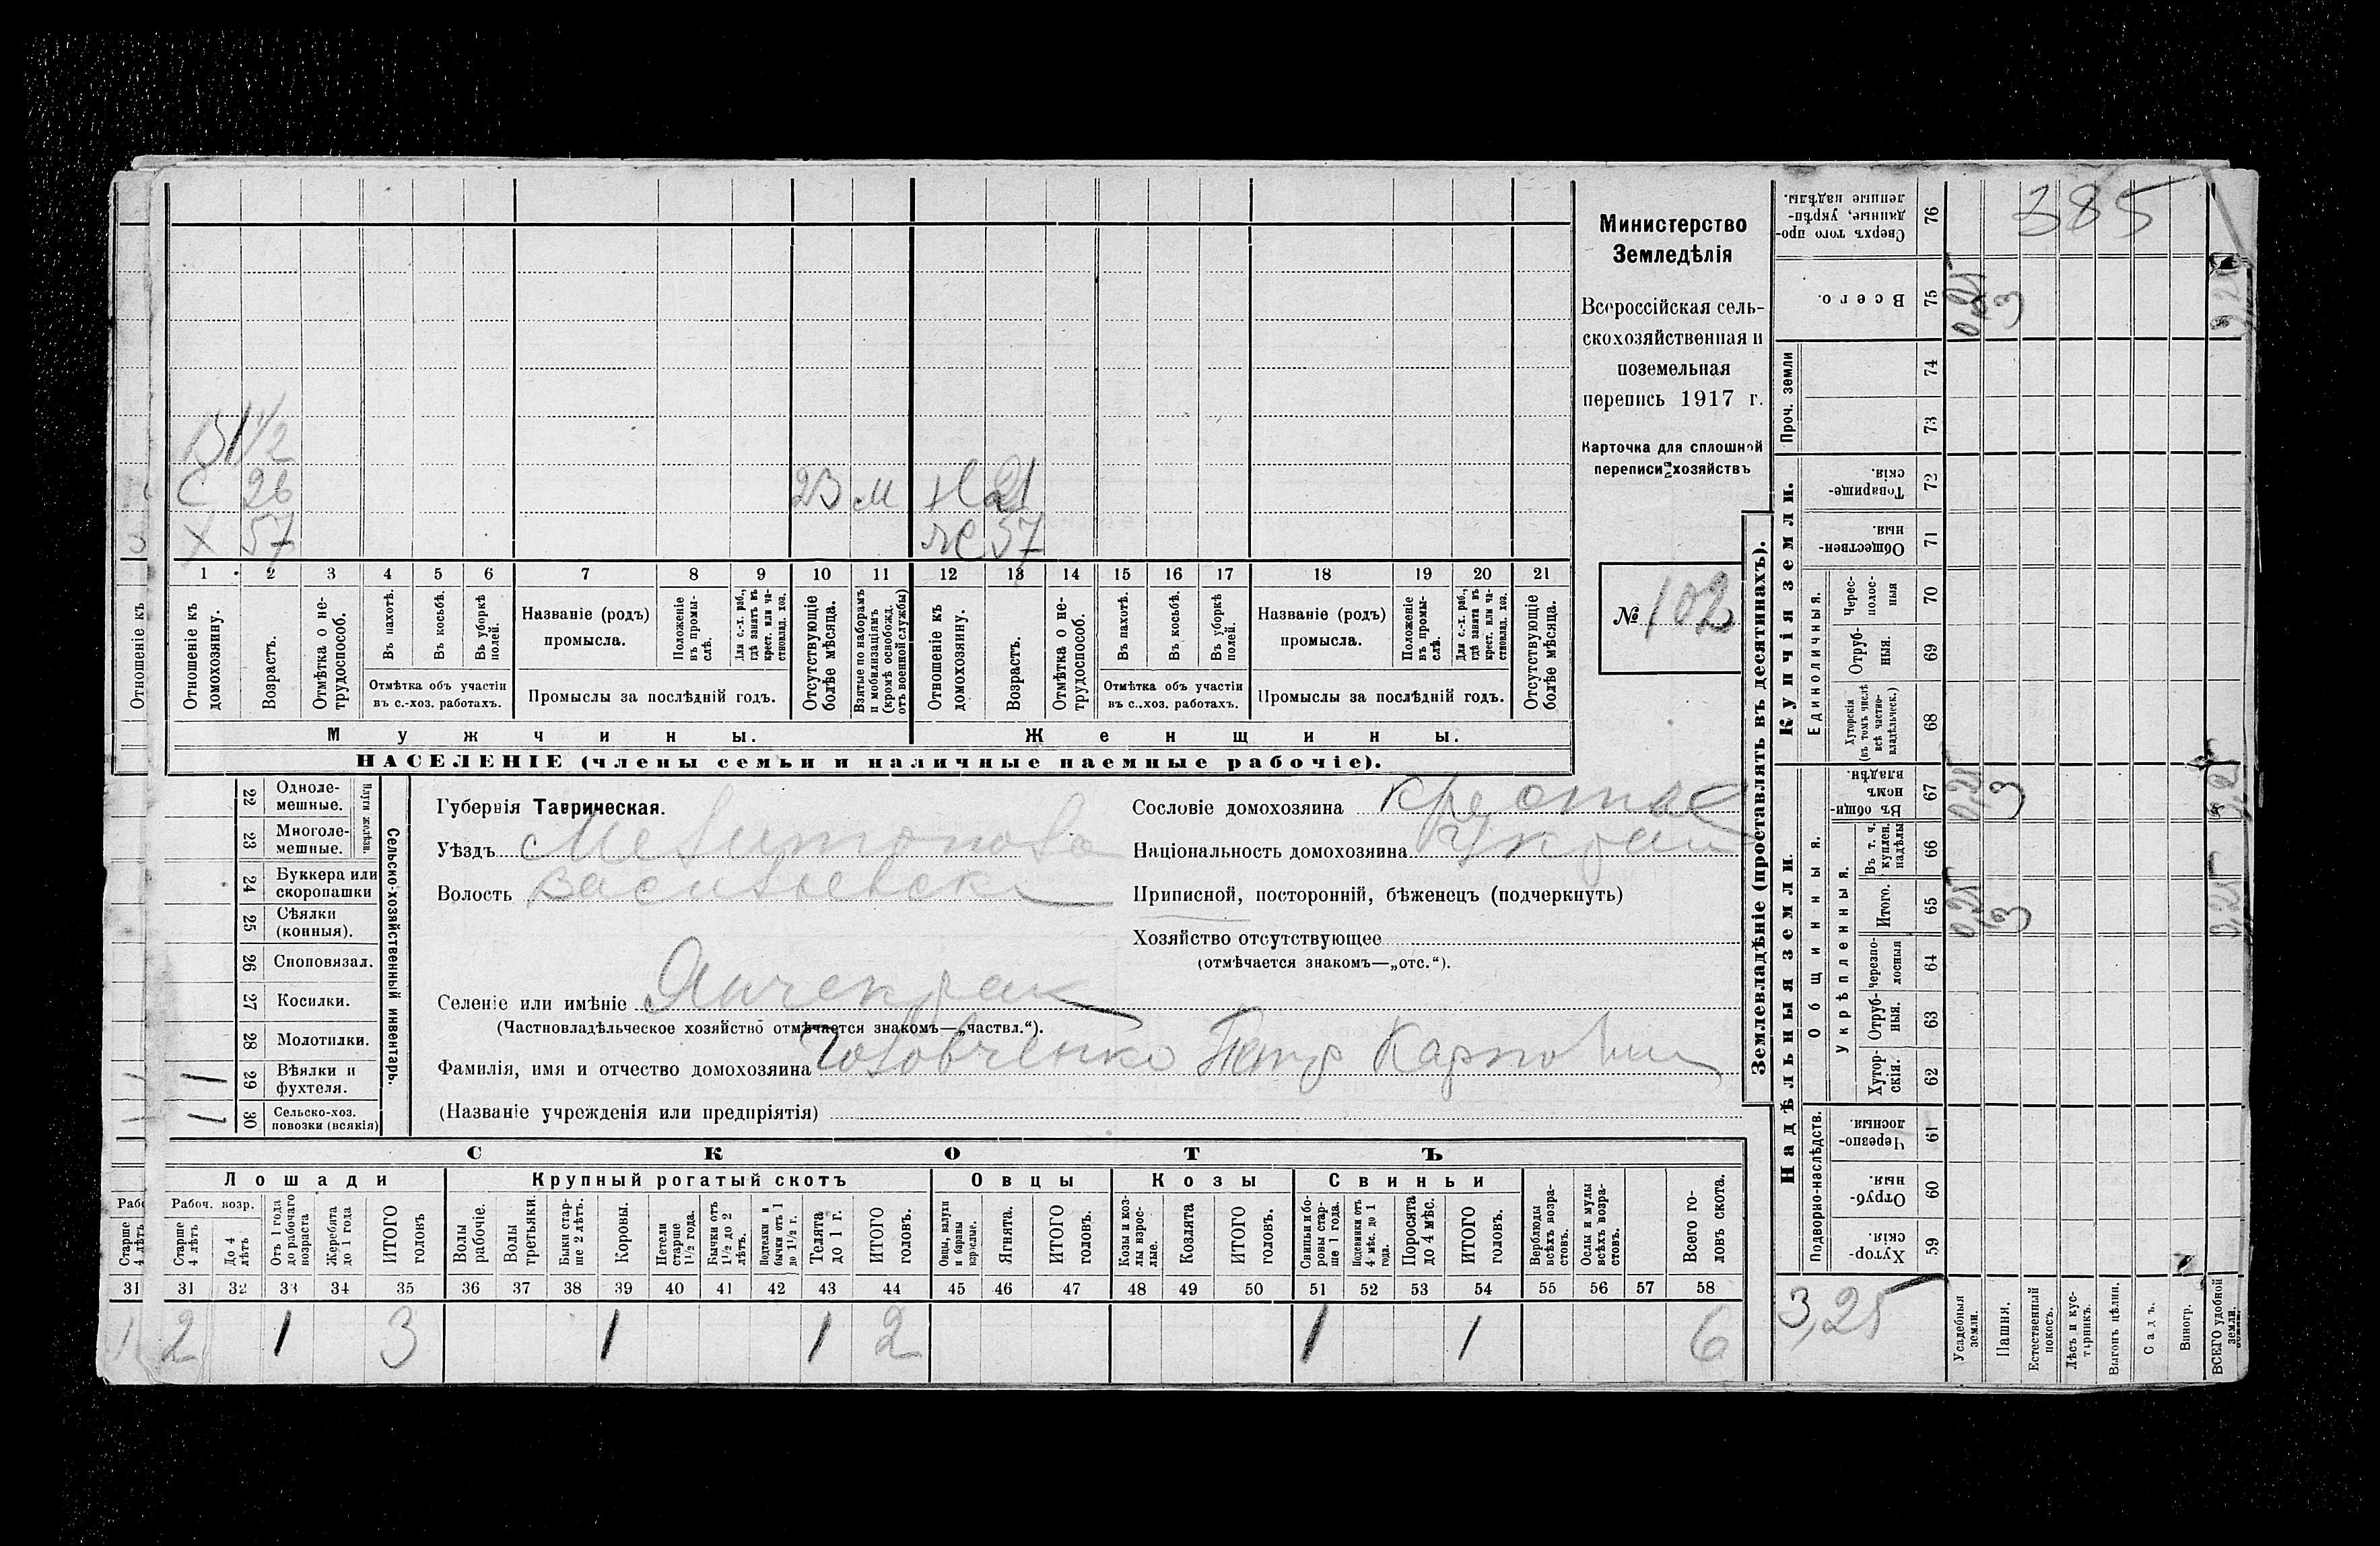 385
В 1 1/2
С 26 2В м Н 21
Х 57 Ж 57
1 2 3 4 5 6 7 8 9 10 11 12 13 14 15 16 17 18 19 20 21
Отношеніе къ домохозяину.
Возрастъ.
Отмѣтка о не-трудоспособ.
Въ пахотѣ.
Въ косьбѣ.
Въ уборкѣ полей.
Отмѣтка объ участіи
въ с.-хоз. работахъ.
Названіе (родъ)
промысла.
Положеніе въ промы-слѣ.
Для с.-х. раб., гдѣ занятъ въ крест. или ча-стновлад. хоз.
Промыслы за послѣдній годъ.
Отсутствующіе болѣе мѣсяца.
Взятые по наборамъ и мобилизаціямъ (кромѣ освобожд. отъ военной службы)
Отношеніе къ домохозяину.
Возрастъ.
Отмѣтка о не-трудоспособ.
Въ пахотѣ.
Въ косьбѣ.
Въ уборкѣ полей.
Отмѣтка объ участіи
въ с..хоз. работахъ.
Названіе (родъ)
промысла.
Положеніе въ промы-слѣ.
Для с.-х. раб., гдѣ занята въ крест. или ча-стновлад. хоз.
Промыслы за послѣдній годъ.
Отсутствующіе болѣе мѣсяца.
Мужчины. Женщины.
НАСЕЛЕНІЕ (члены семьи и наличные наемные рабочіе).
Министерство
Земледѣлія
Всероссійская сель-
скохозяйственная и
поземельная
перепись 1917 г.
Карточка для сплошной
переписи хозяйствъ
№ 102
Отношеніе къ
22 Одноле-мешные.
23 Многоле-мешные.
Плуги желѣзн.
24 Буккера или скоропашки
25 Сѣялки (конныя).
26 Сноповязал.
27 Косилки.
28 Молотилки.
29 Вѣялки и фухтеля. 1
30 Сельско-хоз. повозки (всякія) 1
Сельско-хозяйственный инвентарь.
Губернія Таврическая.
Уѣздъ
Волость Васильевск
Селеніе или имѣніе Янчекрак
(Частновладѣльческое хозяйство отмѣчается знакомъ—„частвл.“).
Фамилія, имя и отчество домохозяина Головченко Петр Карпович
(Названіе учрежденія или предпріятія)
Сословіе домохозяина
Національность домохозяина Украин
Приписной, посторонній, бѣженецъ (подчеркнуть)
Хозяйство отсутствующее
(отмѣчается знакомъ—„отс.“).
СКОТЪ
Лошади Крупный рогатый скотъ Овцы Козы Свиньи
Рабоч. возр.
Старше 4 лѣтъ
До 4 лѣтъ
Отъ 1 года до рабочаго возраста
Жеребята до 1 года
ИТОГО головъ
Волы рабочіе.
Волы третьяки.
Быки стар-ше 2 лѣтъ.
Коровы.
Нетели старше 1½ года.
Бычки отъ 1½ до 2 лѣтъ.
Подтелки и бычки отъ 1 до 1½ г.
Телята до 1 г.
ИТОГО головъ.
Овцы, валухи и бараны взрослые.
Ягнята.
ИТОГО головъ.
Козы и коз-лы взрос-лые.
Козлята
ИТОГО головъ.
Свиньи и бо-ровы стар-ше 1 года.
Подсвинки отъ 4 мѣс. до 1 года.
Поросята до 4 мѣс.
ИТОГО головъ.
Верблюды всѣхъ возра-стовъ.
Ослы и мулы всѣхъ возра-стовъ.
Всего го-ловъ скота.
31 31 32 33 34 35 36 37 38 39 40 41 42 43 44 45 46 47 48 49 50 51 52 53 54 55 56 57 58
1 2 1 3 1 1 2 1 1 6
Землевладѣніе (проставлять въ десятинахъ).
Купчія земли.
Надѣльныя земли.
Сверхъ того про-данные, укрѣп-ленные надѣлы. 76
Всего. 75 0,25 3
Проч. земли 74 73
Товарище-скія. 72
Обществен-ныя. 71
Единоличныя.
Черес-полос-ныя 70
Отруб-ныя. 69
Хуторскія (въ томъ числѣ всѣ частно-владѣльческ.) 68
Въ общи-номъ владѣн. 67 0,25 3
Общинныя.
Укрѣпленныя.
Въ т. ч. куплен. надѣлы 66
Итого. 65 0,25 3
Черезпо-лосныя 64
Отруб-ныя. 63
Хутор-скія. 62
Подворно-наслѣдств.
Черезпо-лосныя. 61
Отруб-ныя. 60
Хутор-скія. 59
3,25
Усадебныя земли.
Пашня.
Естественный покосъ.
Лѣсъ и кус-тарникъ.
Выгонъ цѣлин.
Садъ.
Виногр.
ВСЕГО удобной земли.